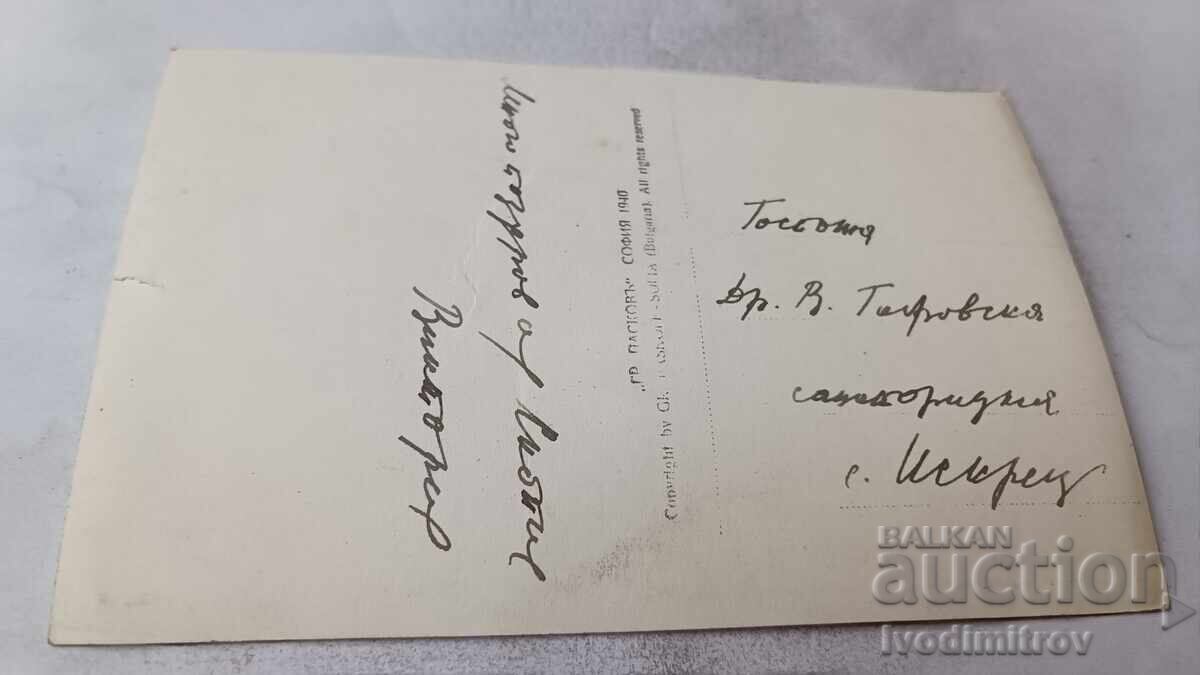 Много поздрави от
Виктория
„ГР. ПАСКОВЪ“ СОФИЯ 1940
Copyright by GR. PASKOFF-SOFIA (Bulgaria). All rights reserved
Госпожа
Др. В.
санаториума
с. Искрец
BALKAN
auction
ivodimitrov